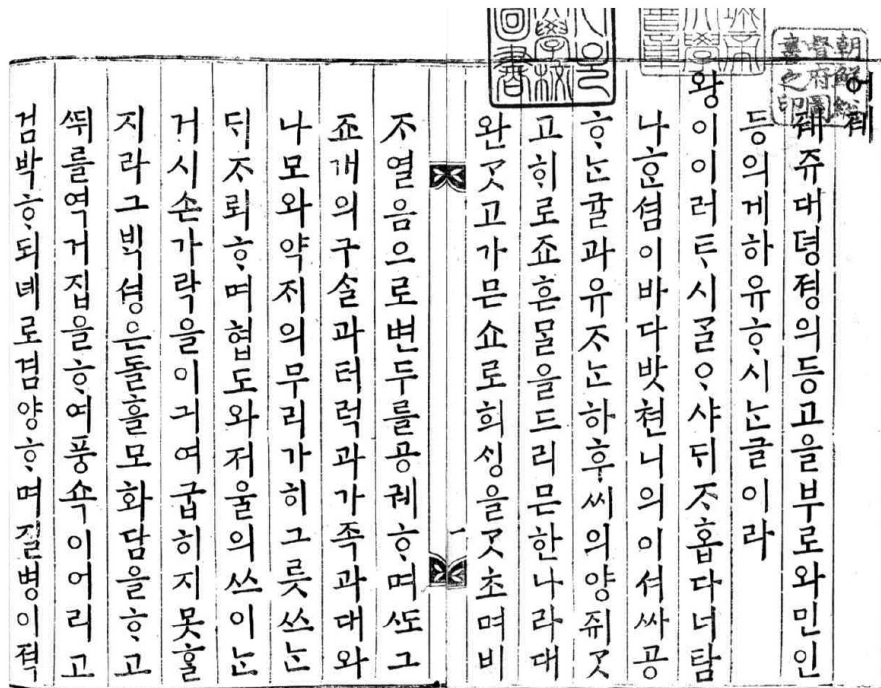 어제
졔쥬대뎡졍의등고을부로와민인
등의게하유ᄒᆞ시ᄂᆞᆫ글이라
왕이이러ᄐᆞ시ᄀᆞᆯᄋᆞ샤ᄃᆡᄌᆞ홉다너탐
나ᄒᆞᆫ셤이바다밧쳔니의이셔ᄡᅡ공
ᄒᆞᄂᆞᆫ귤과유ᄌᆞᄂᆞᆫ하후씨의양쥐ᄀᆞᆺ
고ᄒᆡ로죠흔ᄆᆞᆯ을드리믄한나라대
완ᄀᆞᆺ고가믄쇼로희ᄉᆡᆼ을ᄀᆞᆺ초며비
ᄌᆞ열음으로변두를공궤ᄒᆞ며ᄯᅩ그
죠개의구슬과터럭과가족과대와
나모와약ᄌᆡ의무리가히그릇ᄡᅳᄂᆞᆫ
ᄃᆡᄌᆞ뢰ᄒᆞ며협도와저울의ᄡᅳ이ᄂᆞᆫ
거시손가락을이긔여굽히지못ᄒᆞᆯ
지라그ᄇᆡᆨ셩은돌흘모화담을ᄒᆞ고
ᄯᅱ를역거집을ᄒᆞ여풍쇽이어리고
검박ᄒᆞ되녜로겸양ᄒᆞ며질병이젹
一
朝鮮總
督府圖
書之印